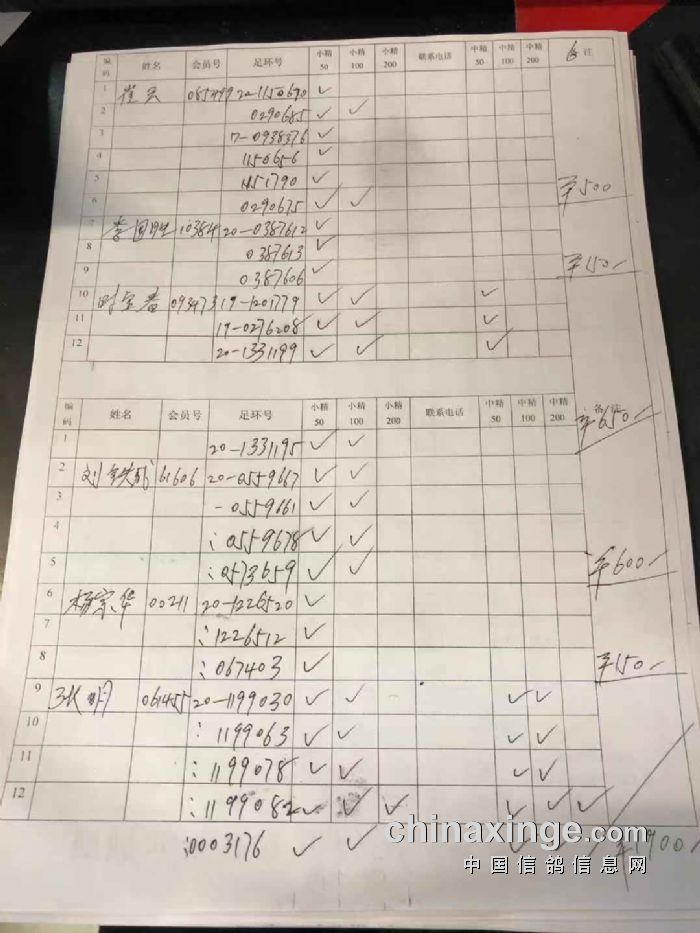 编码 姓名 会员号 足环号 小精50 小精100 小精200 联系电话 中精50 中精100 中精200 备注
1 崔云 085499 20-1150670 ✓
2 0290685 ✓ ✓
3 7-0938376 ✓
4 1150656 ✓
5 1151790 ✓
6 0290675 ✓ ✓ ¥500
7 李国胜 10384 20-0387612 ✓
8 0387613 ✓
9 0387606 ✓ ¥150-
10 093473 19-1201779 ✓ ✓ ✓
11 19-0276208 ✓ ✓ ✓
12 20-1331199 ✓ ✓ ✓
编码 姓名 会员号 足环号 小精50 小精100 小精200 联系电话 中精50 中精100 中精200 备注
¥650-
1 20-1331195 ✓ ✓
2 刘 61606 20-0559667 ✓ ✓
3 -0559661 ✓ ✓
4 :0559678 ✓ ✓
5 :0573659 ✓ ✓ ¥600-
6 杨宗华 00211 20-1226520 ✓
7 :1226512 ✓
8 :067403 ✓ ¥150-
9 张明 061455 20-1199030 ✓ ✓ ✓ ✓
10 :1199063 ✓ ✓ ✓ ✓
11 :1199078 ✓ ✓ ✓ ✓
12 :1199082 ✓ ✓ ✓ ✓ ✓ ✓
:0003176 ✓ ✓ ✓ ¥1900-
chinaxinge.com
中国信鸽信息网